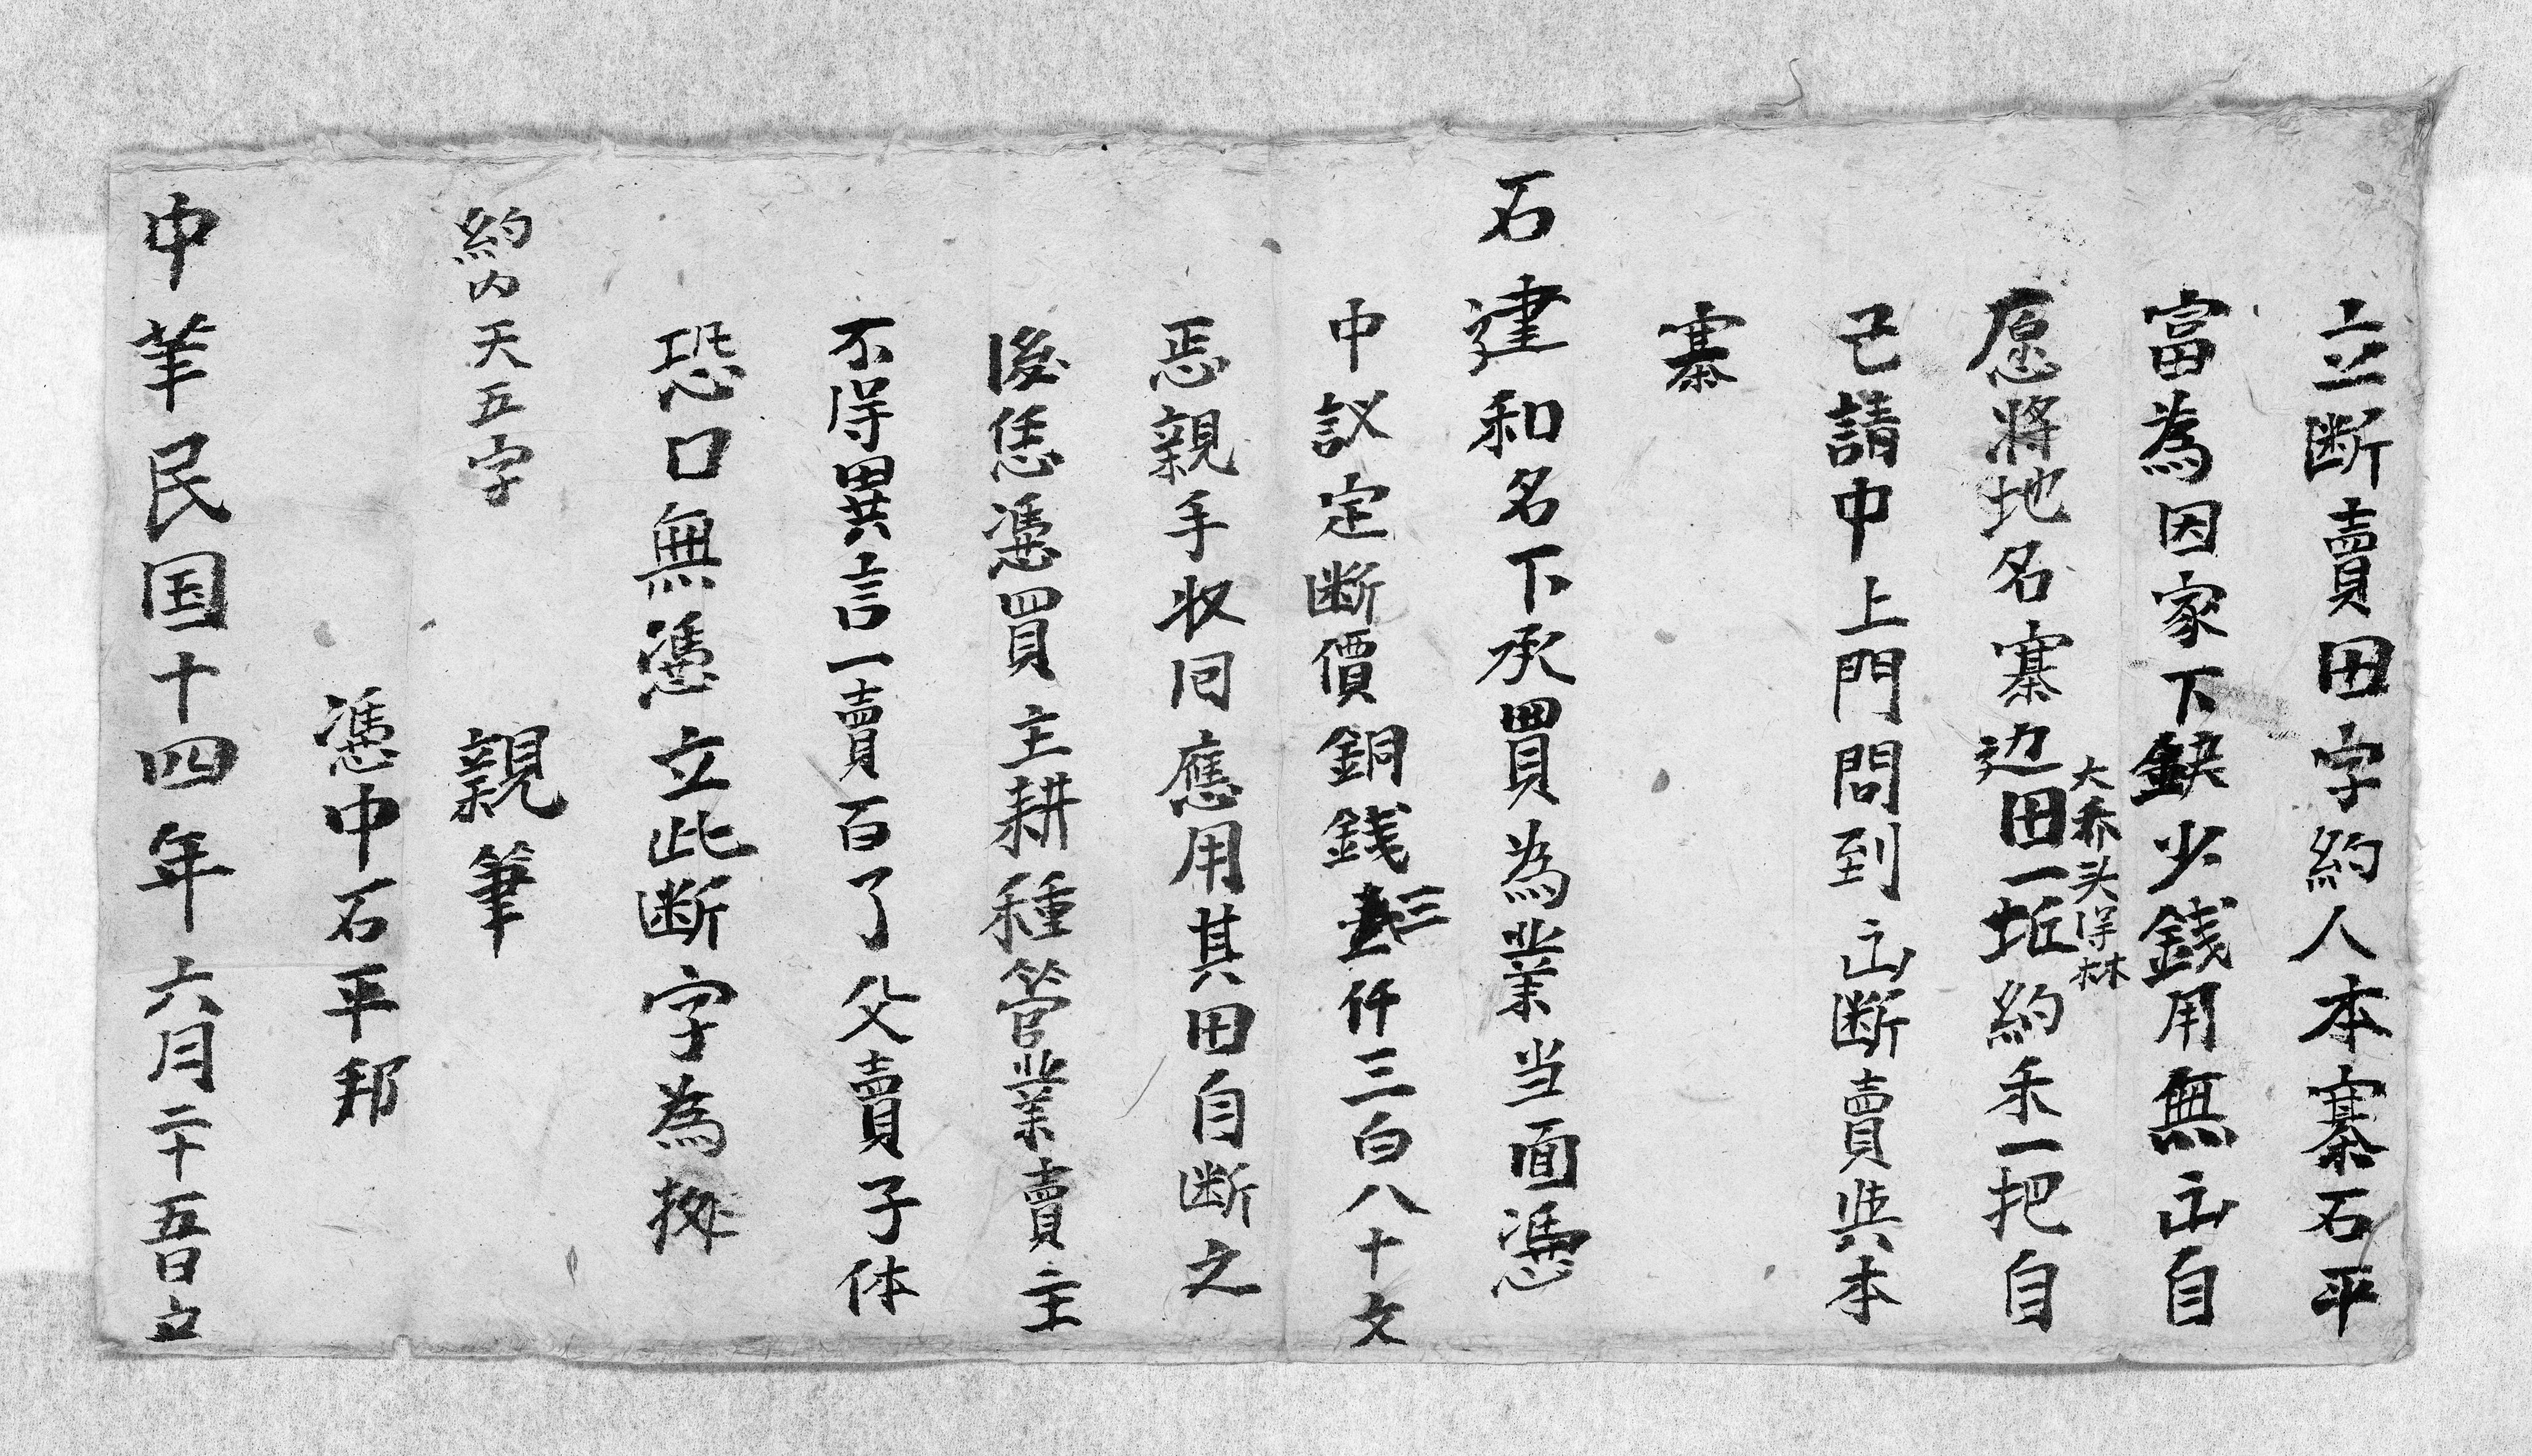 立断賣田字約人本寨石平
富為因家下缺少錢用無出自
愿將地名寨边田一坵約禾一把自
大乔头洋林
己請中上門問到出断賣與本
寨
石建和名下承買為業当面憑
中議定断價銅錢三仟三百八十文
焉親手收回應用其田自断之
後恁憑買主耕種管業賣主
不得異言一賣百了父賣子休
恐口無憑立此断字為據
約内天五字 親筆
憑中石平邦
中華民国十四年六月二十五日立